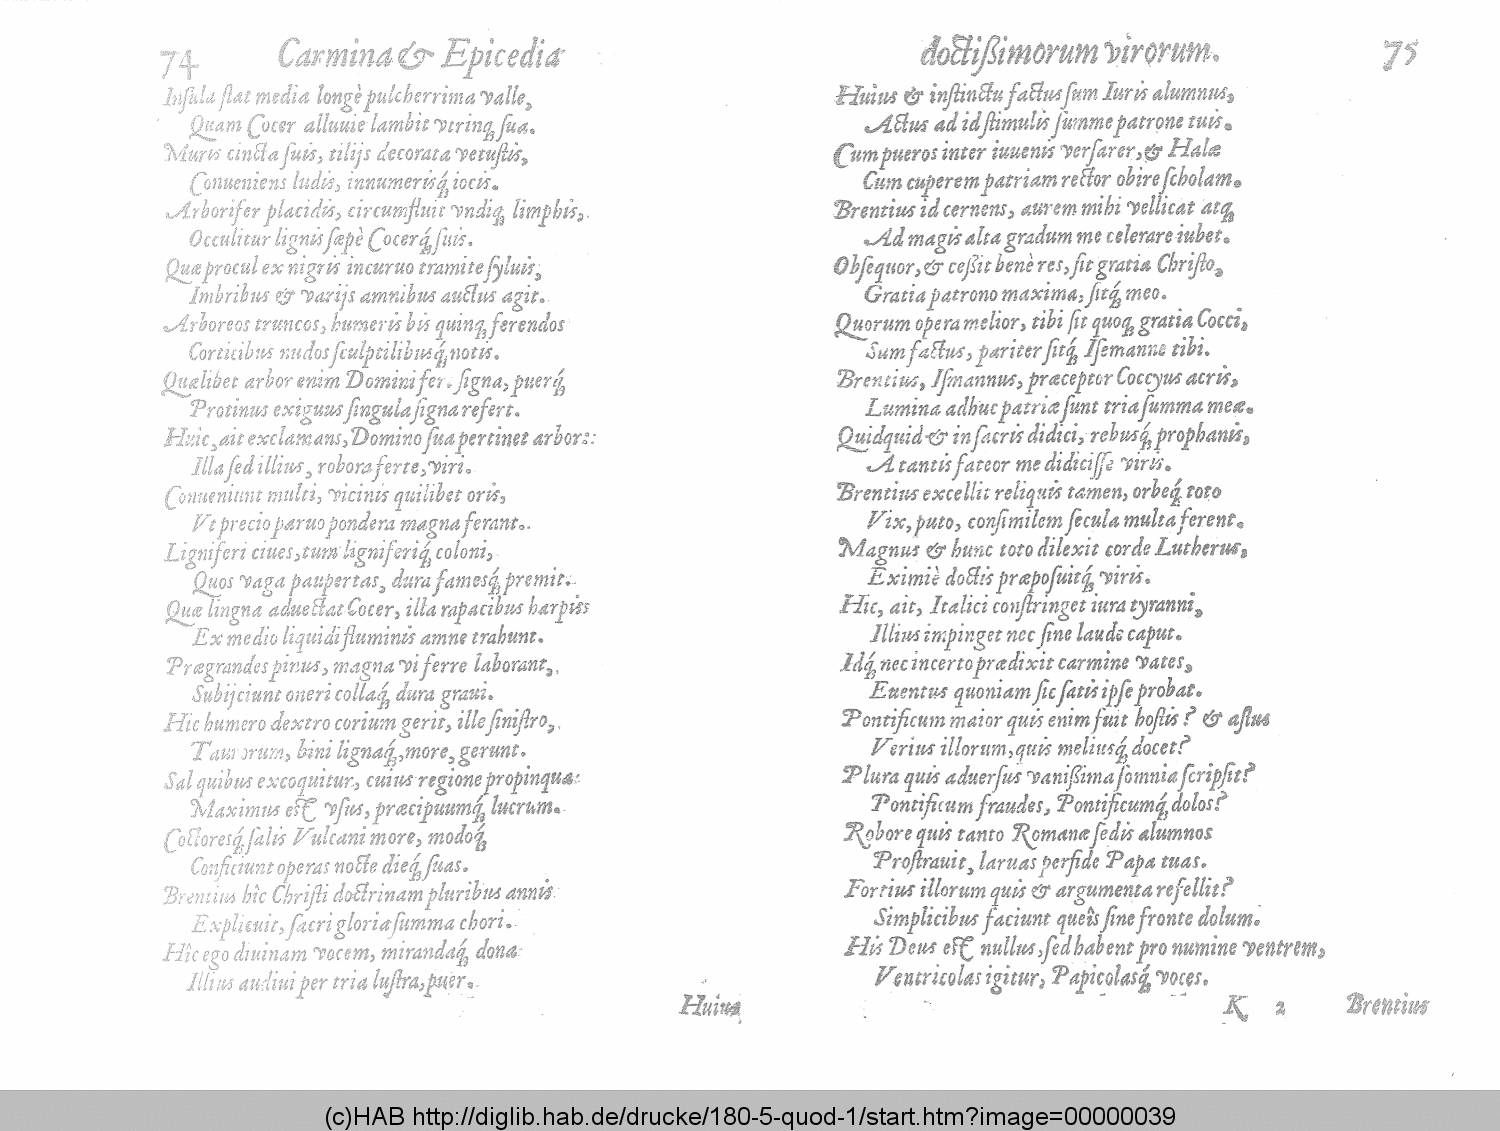 74 Carmina & Epicedia
Insula stat media longè pulcherrima valle,
Quam Cocer alluuie lambit vtrinq́ sua.
Muris cincta suis, tilijs decorata vetustis,
Conueniens ludis, innumerisq́ iocis.
Arborifer placidis, circumfluit vndiq́ limphis,
Occulitur lignis sæpè Cocerq́ suis.
Quæ procul ex nigris incuruo tramite syluis,
Imbribus & varijs amnibus auctus agit.
Arboreos truncos, humeris bis quinq́ ferendos
Corticibus nudos sculptilibusq́ notis.
Quælibet arbor enim Domini fert signa, puerq́
Protinus exiguus singula signa refert.
Huic, ait exclamans, Domino sua pertinet arbor:
Illa sed illius, robora ferte, viri.
Conueniunt multi, vicinis quilibet oris,
Vt precio paruo pondera magna ferant.
Ligniferi ciues, tum ligniferiq́ coloni,
Quos vaga paupertas, dura famesq́ premit.
Quæ lingna aduectat Cocer, illa rapacibus harpiis
Ex medio liquidi fluminis amne trahunt.
Prægrandes pinus, magna vi ferre laborant,
Subijciunt oneri collaq́ dura graui.
Hic humero dextro corium gerit, ille sinistro,
Taurorum, bini lignaq́, more, gerunt.
Sal quibus excoquitur, cuius regione propinqua
Maximus est vsus, præcipuumq́ lucrum.
Coctoresq́ salis Vulcani more, modoq́
Conficiunt operas nocte dieq́ suas.
Brentius hîc Christi doctrinam pluribus annis
Explicuit, sacri gloria summa chori.
Hîc ego diuinam vocem, mirandaq́ dona
Illius audiui per tria lustra, puer.
Huius
doctißimorum virorum. 75
Huius & instinctu factus sum Iuris alumnus,
Actus ad id stimulis summe patrone tuis.
Cum pueros inter iuuenis versarer, & Halæ
Cum cuperem patriam rector obire scholam.
Brentius id cernens, aurem mihi vellicat atq́
Ad magis alta gradum me celerare iubet.
Obsequor, & ceßit benè res, sit gratia Christo,
Gratia patrono maxima, sitq́ meo.
Quorum opera melior, tibi sit quoq́ gratia Cocci,
Sum factus, pariter sitq́ Isemanne tibi.
Brentius, Ismannus, præceptor Coccyus acris,
Lumina adhuc patriæ sunt tria summa meæ.
Quidquid & in sacris didici, rebusq́ prophanis,
A tantis fateor me didicisse viris.
Brentius excellit reliquis tamen, orbeq́ toto
Vix, puto, consimilem secula multa ferent.
Magnus & hunc toto dilexit corde Lutherus,
Eximiè doctis præposuitq́ viris.
Hic, ait, Italici constringet iura tyranni,
Illius impinget nec sine laude caput.
Idq́ nec incerto prædixit carmine vates,
Euentus quoniam sic satis ipse probat.
Pontificum maior quis enim fuit hostis? & astus
Verius illorum, quis meliusq́ docet?
Plura quis aduersus vanißima somnia scripsit?
Pontificum fraudes, Pontificumq́ dolos?
Robore quis tanto Romanæ sedis alumnos
Prostrauit, laruas perfide Papa tuas.
Fortius illorum quis & argumenta refellit?
Simplicibus faciunt queîs sine fronte dolum.
His Deus est nullus, sed habent pro numine ventrem,
Ventricolas igitur, Papicolasq́ voces.
K 2 Brentius
(c)HAB http://diglib.hab.de/drucke/180-5-quod-1/start.htm?image=00000039